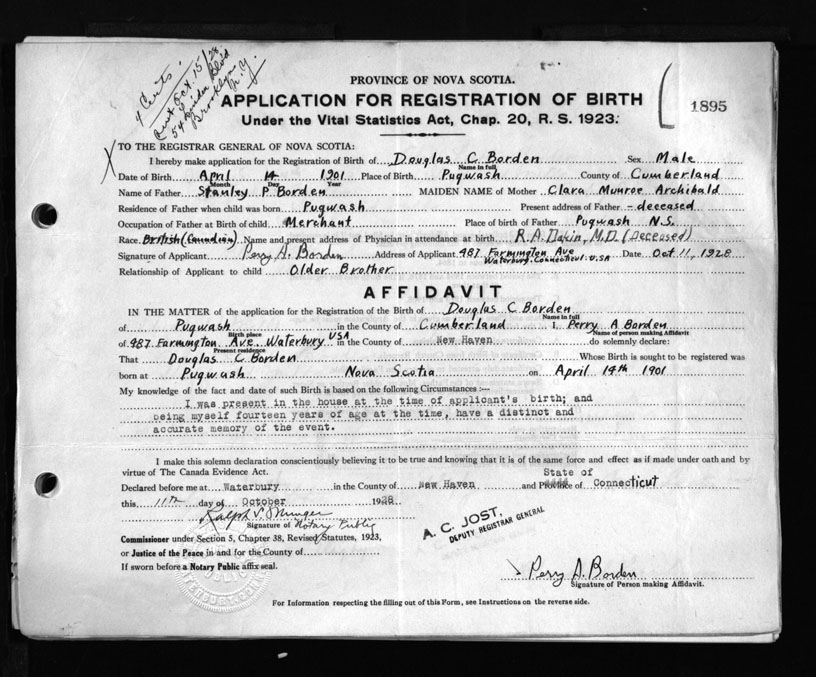 4 Cents.
Oct. 15/28
54 Linden Blv'd
Brooklyn
N.Y.
PROVINCE OF NOVA SCOTIA.
APPLICATION FOR REGISTRATION OF BIRTH
Under the Vital Statistics Act, Chap. 20, R. S. 1923.
1895
X
TO THE REGISTRAR GENERAL OF NOVA SCOTIA:
I hereby make application for the Registration of Birth of Douglas C Borden Sex Male
Name in full
Date of Birth April 14 1901 Place of Birth Pugwash County of Cumberland
Month Day Year
Name of Father Stanley P Borden MAIDEN NAME of Mother Clara Munroe Archibald
Residence of Father when child was born Pugwash Present address of Father - deceased
Occupation of Father at Birth of child Merchant Place of birth of Father Pugwash N.S.
Race British (Canadian) Name and present address of Physician in attendance at birth R.A. Dakin, M.D. (Deceased)
Signature of Applicant Perry A. Borden Address of Applicant 987 Farmington Ave Date Oct 11, 1928
Waterbury. Connecticut. U.S.A
Relationship of Applicant to child Older Brother
AFFIDAVIT
IN THE MATTER of the application for the Registration of the Birth of Douglas C Borden
Name in full
of Pugwash in the County of Cumberland I, Perry A Borden
Birth place Name of person making Affidavit
of 987 Farmington Ave. Waterbury USA in the County of New Haven do solemnly declare:
Present residence
That Douglas C Borden Whose Birth is sought to be registered was
born at Pugwash Nova Scotia on April 14th 1901
My knowledge of the fact and date of such Birth is based on the following Circumstances :—
I was present in the house at the time of applicant's birth; and
being myself fourteen years of age at the time, have a distinct and
accurate memory of the event.
I make this solemn declaration conscientiously believing it to be true and knowing that it is of the same force and effect as if made under oath and by
virtue of The Canada Evidence Act.
State of
Declared before me at Waterbury in the County of New Haven and Province of Connecticut
this 11th day of October 1928
Ralph V. Munger
Signature of Notary Public
A. C. JOST,
DEPUTY REGISTRAR GENERAL
Commissioner under Section 5, Chapter 38, Revised Statutes, 1923,
or Justice of the Peace in and for the County of
If sworn before a Notary Public affix seal.
Perry A. Borden
Signature of Person making Affidavit.
For Information respecting the filling out of this Form, see Instructions on the reverse side.